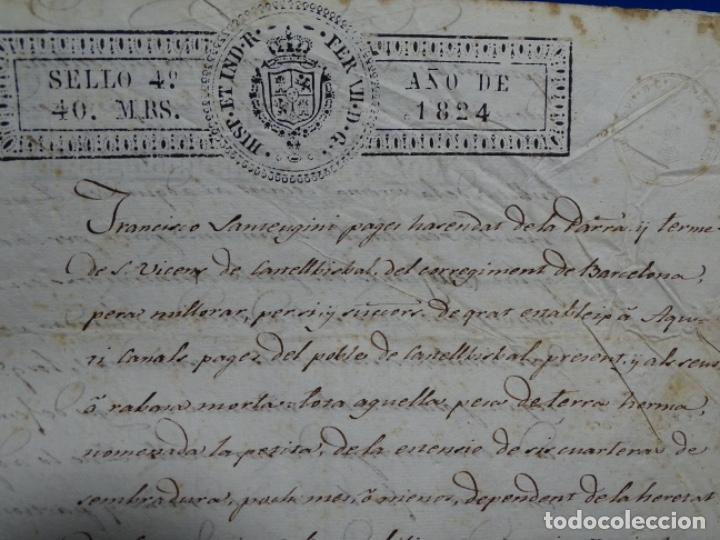 SELLO 4º
40. MRS.
HISP. ET IND. R. FER. VII. D. G.
AÑO DE
1824
Francisco pages hasendat de la Parra. y terme
de S. Vicens de Castellbisbal, del corregiment de Barcelona,
pera millorar, per si, y succes. de grat estableix â Agus-
ti Canals pages del poble de Castellbisbal, present, y als seus,
â rabasa morta tota aquella pesa de terra herma,
nomenada la petita, de la extensio de sis cuarteras de
sembradura, poch mes, ô menos, dependent de la heretat
todocoleccion